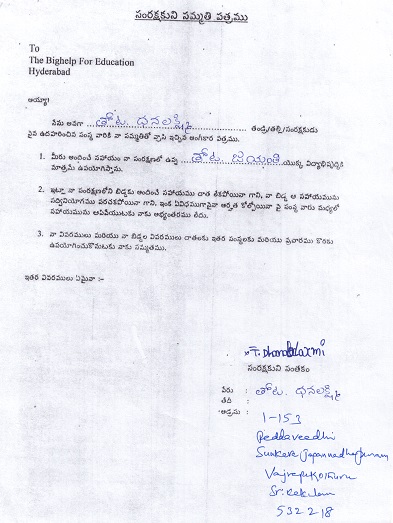 సంరక్షకుని సమ్మతి పత్రము
To
The Bighelp For Education
Hyderabad
అయ్యా!
నేను అనగా ...తోట. ధనలక్ష్మి... తండ్రి/తల్లి/సంరక్షకుడు
పైన ఉదహరించిన సంస్థ వారికి నా సమ్మతితో వ్రాసి ఇచ్చిన అంగీకార పత్రము.
1. మీరు అందించే సహాయం నా సంరక్షణలో ఉన్న ...తోట. జయంతి... యొక్క విద్యాభివృద్ధికి
మాత్రమే ఉపయోగిస్తాను.
2. ఇట్లూ నా సంరక్షణలోని బిడ్డకు అందించే సహాయము దాత ఇకపోయినా గాని, నా బిడ్డ ఆ సహాయమును
సద్వినియోగము పరచకపోయినా గాని, ఇంక ఏవిధముగానైనా అర్హత కోల్పోయినా పై సంస్థ వారు మధ్యలో
సహాయమును ఆపివేయుటకు నాకు అభ్యంతరము లేదు.
3. నా వివరములు మరియు నా బిడ్డల వివరములు దాతలకు ఇతర సంస్థలకు మరియు ప్రచారము కొరకు
ఉపయోగించుకొనుటకు నాకు సమ్మతము.
ఇతర వివరములు ఏమైనా :-
T. Dhanalaxmi
సంరక్షకుని సంతకం
పేరు : తోట. ధనలక్ష్మి
తేది :
అడ్రసు :
1-153
Peddaveedhi
Vajrapukotturu
Sri.kakulam
532218